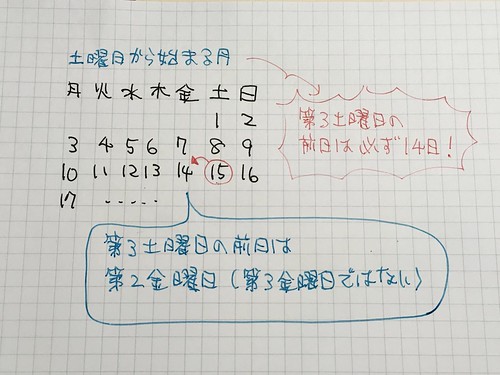 土曜日から始まる月
月 火 水 木 金 土 日
1 2
3 4 5 6 7 8 9
10 11 12 13 14 15 16
17 . . . . .
第3土曜日の
前日は必ず14日!
第3土曜日の前日は
第2金曜日(第3金曜日ではない)